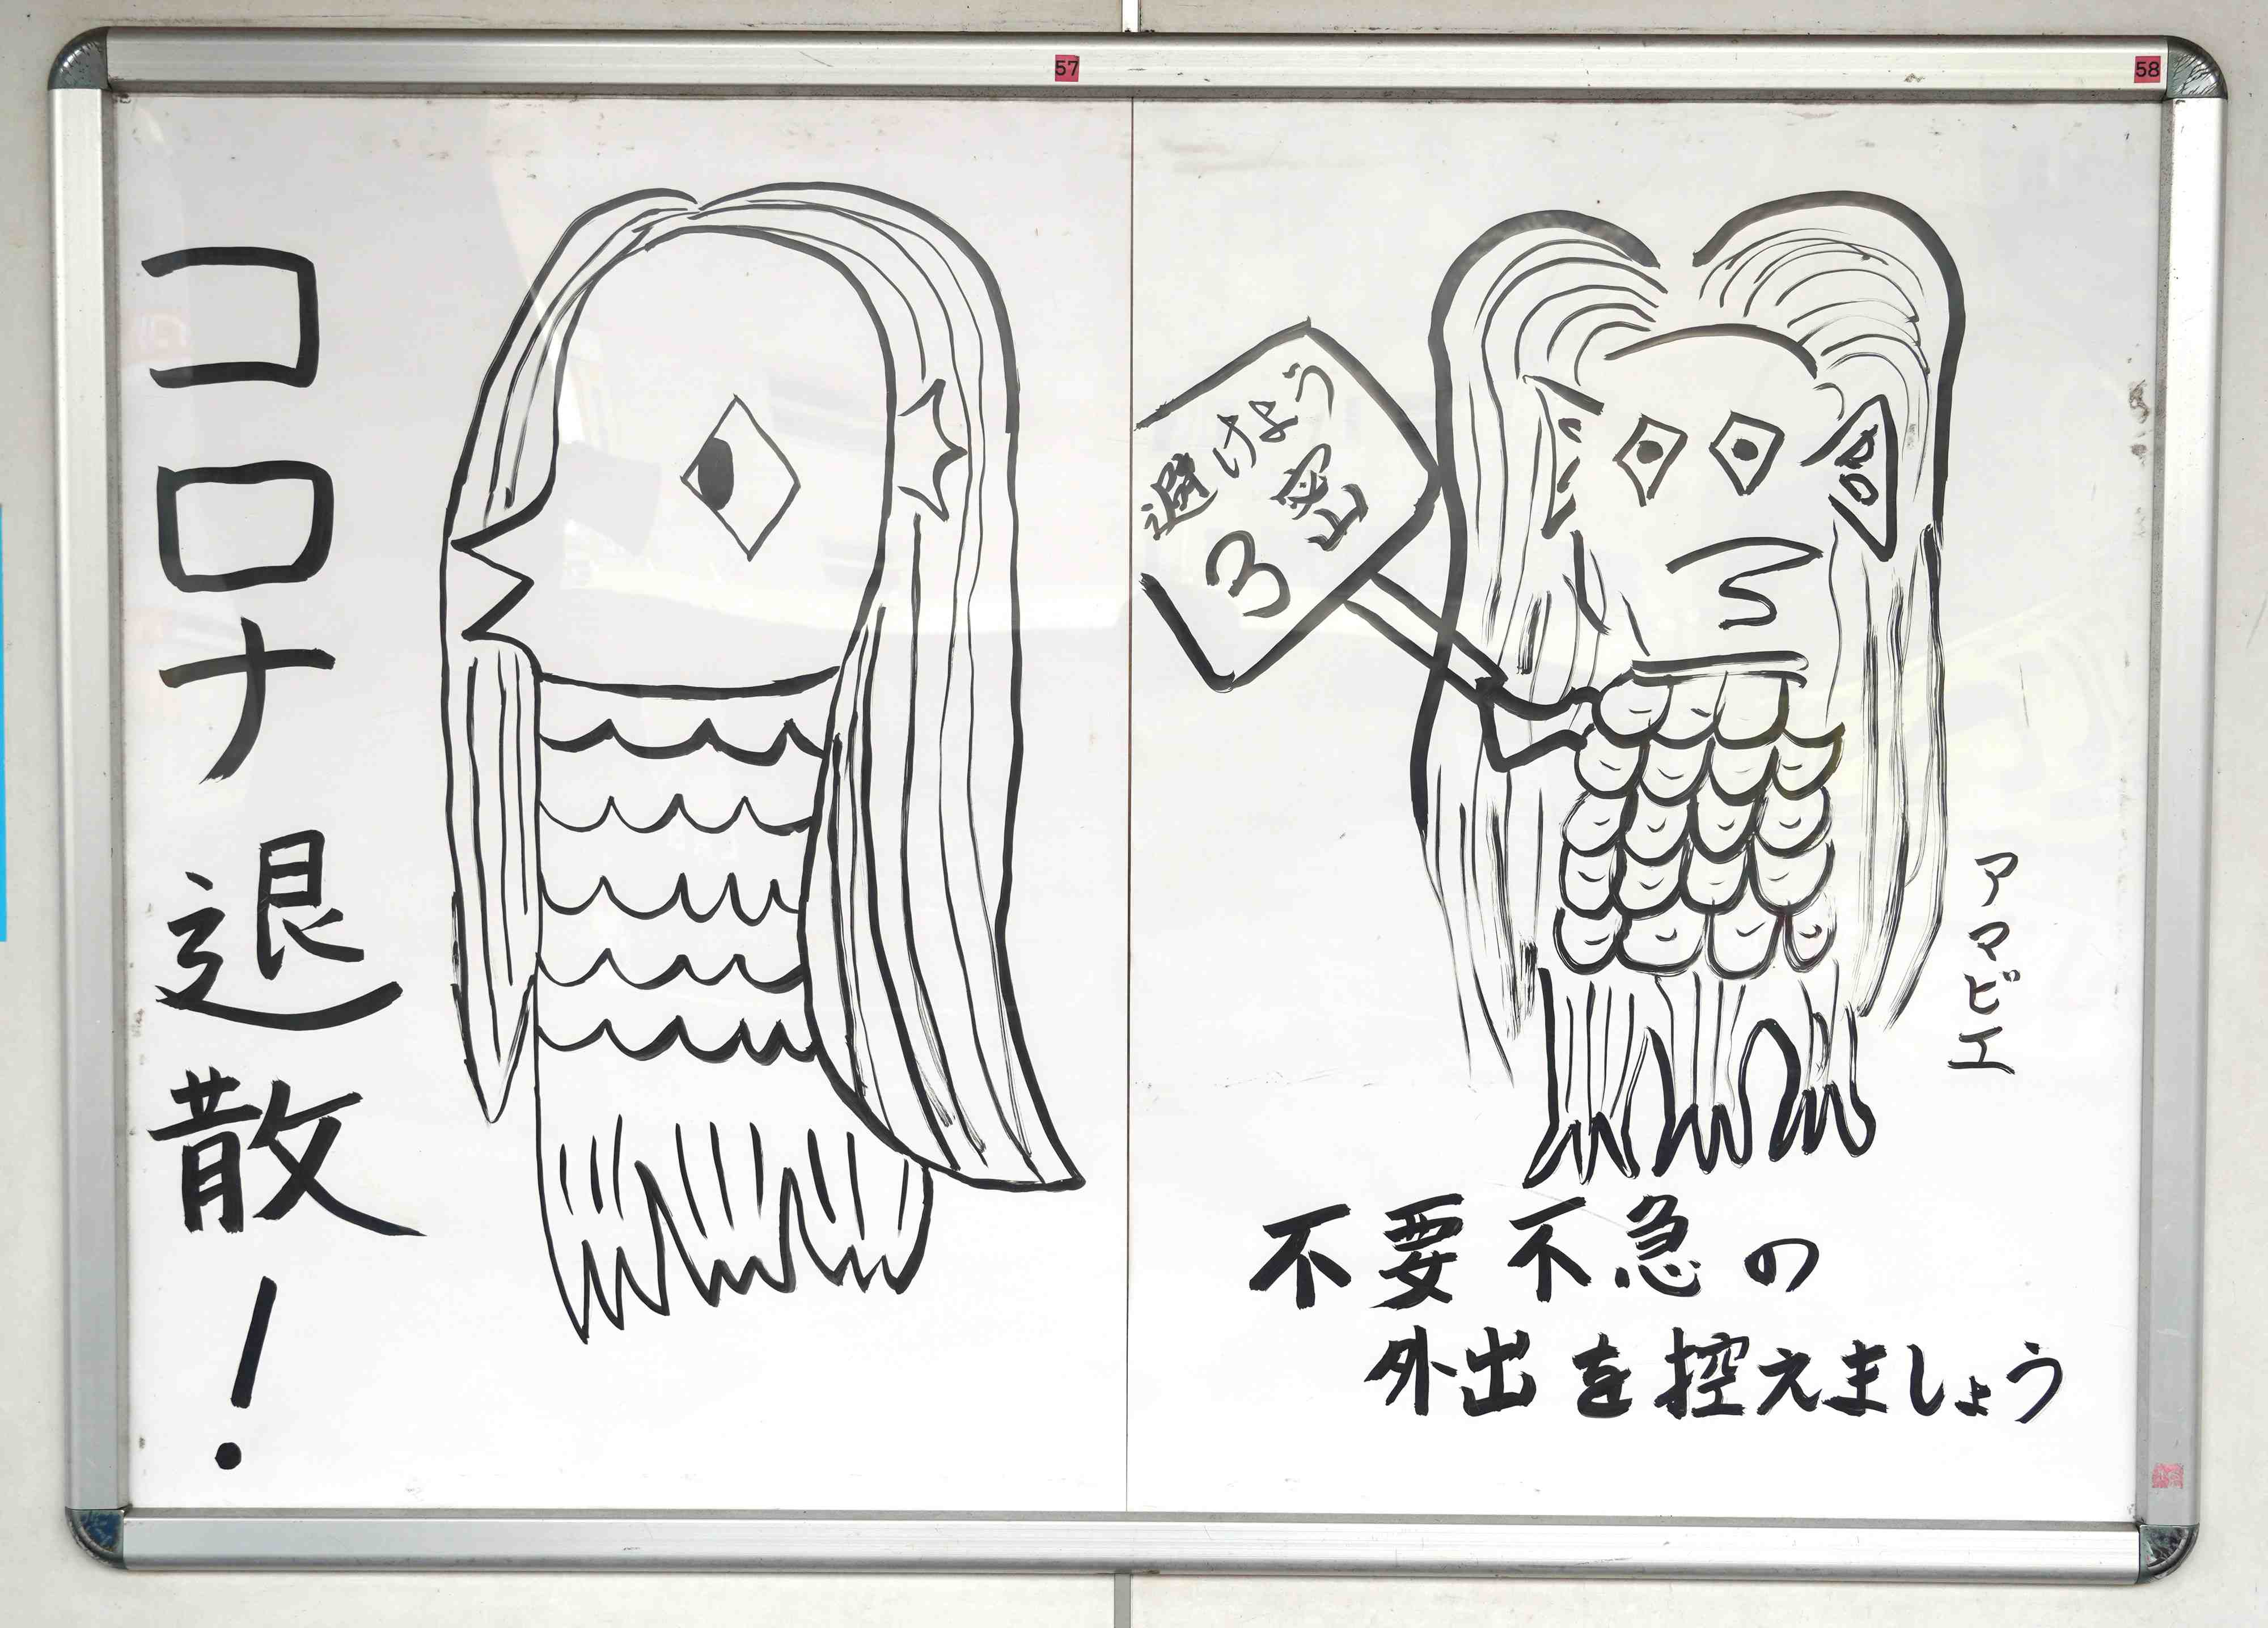 57
58
コロナ退散！
避けよう
3密
アマビエ
不要不急の
外出を控えましょう